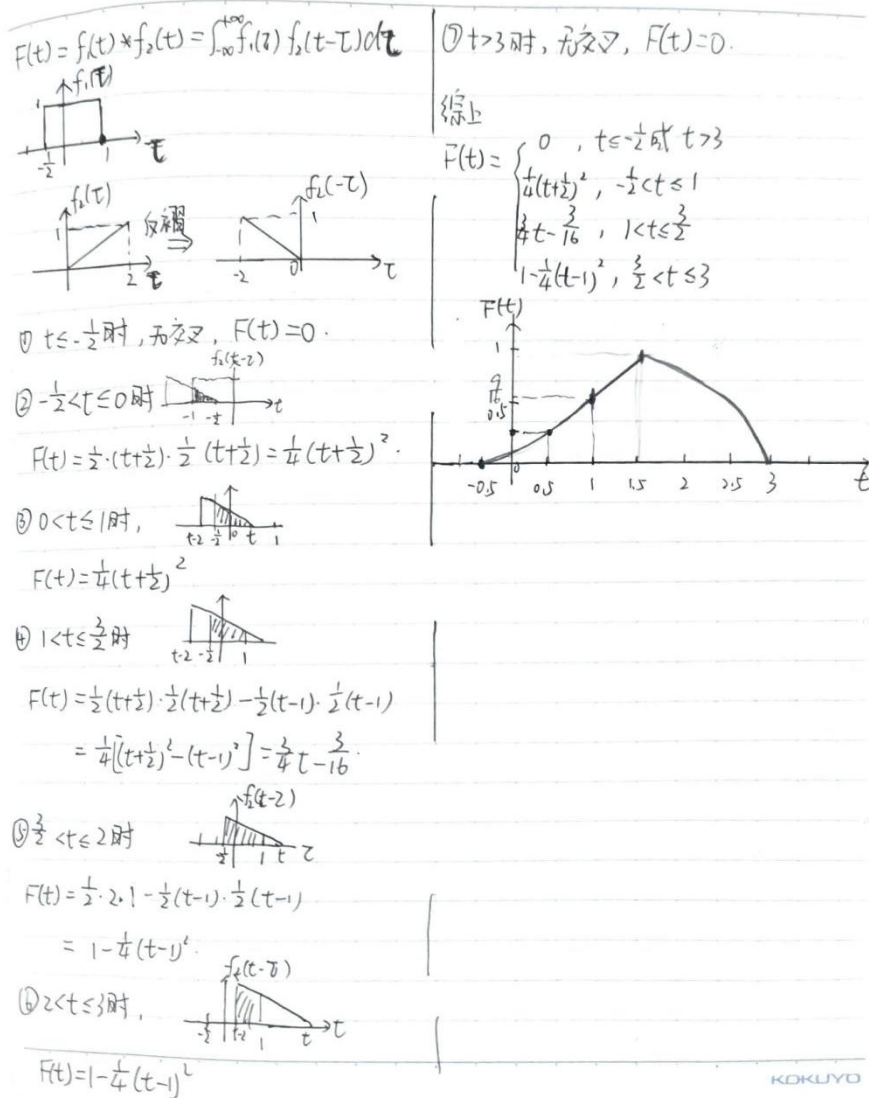 F(t) = f₁(t) * f₂(t) = ∫₋∞^{+∞} f₁(τ) f₂(t-τ) dτ
f₁(τ)
1
-1/2 1 τ
f₂(τ) f₂(-τ)
1 反褶 ⇒ 1
2 τ -2 0 τ
① t≤-1/2时, 无交叉, F(t)=0.
f₂(t-τ)
② -1/2<t≤0时
-1 -1/2 t
F(t)=1/2·(t+1/2)·1/2(t+1/2)=1/4(t+1/2)².
③ 0<t≤1时,
t-2 -1/2 0 t 1
F(t)=1/4(t+1/2)²
④ 1<t≤3/2时
t-2 -1/2 1
F(t)=1/2(t+1/2)·1/2(t+1/2)-1/2(t-1)·1/2(t-1)
=1/4[(t+1/2)²-(t-1)²]=3/4t-3/16.
f₂(t-τ)
⑤ 3/2<t≤2时
-1/2 1 t τ
F(t)=1/2·2·1-1/2(t-1)·1/2(t-1)
=1-1/4(t-1)².
f₂(t-τ)
⑥ 2<t≤3时,
-1/2 t-2 1 t τ
F(t)=1-1/4(t-1)²
⑦ t>3时, 无交叉, F(t)=0.
综上
F(t)= { 0 , t≤-1/2或 t>3
1/4(t+1/2)² , -1/2<t≤1
3/4t-3/16 , 1<t≤3/2
1-1/4(t-1)² , 3/2<t≤3
F(t)
1
9/16
0.5
-0.5 0 0.5 1 1.5 2 2.5 3 t
KOKUYO